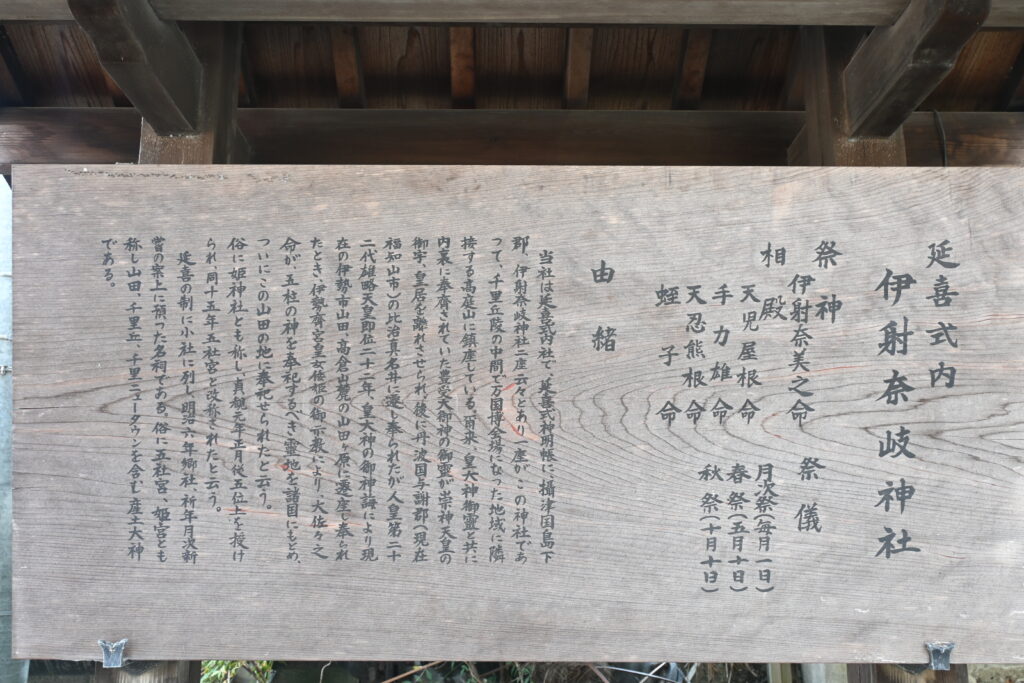 延喜式内
伊射奈岐神社
祭神
伊射奈美之命
相殿
天児屋根命
手力雄命
天忍熊根命
蛭子命
祭儀
月次祭(毎月一日)
春祭(五月十日)
秋祭(十月十日)
由緒
当社は延喜式内社で、延喜式神明帳に、摂津国島下
郡、伊射奈岐神社二座云々とあり一座が、この神社であ
つて、千里丘陵の中間で万国博会場になった地域に隣
接する高庭山に鎮座している。爾来、皇大神御霊と共に
内裏に奉齋されていた豊受大御神の御霊が崇神天皇の
御宇、皇居を離れさせられ、後に丹波国与謝郡(現在
福知山市)の比治真名井に遷し奉られたが人皇第二十
二代雄略天皇即位二十二年、皇大神の御神誨により現
在の伊勢市山田、高倉山麓の山田ヶ原に遷座し奉られ
たとき、伊勢齋宮皇女倭姫の御示教により、大佐々之
命が、五柱の神を奉祀するべき霊地を諸国にもとめ、
ついにこの山田の地に奉祀せられたと云う。
俗に姫神社とも称し、貞観元年正月従五位上を授け
られ、同十五年五社宮と改称されたと云う。
延喜の制に小社に列し、明治六年郷社、祈年月次新
嘗の案上に預った名祠である。俗に五社宮、姫宮とも
称し山田、千里丘、千里ニュータウンを含む産土大神
である。